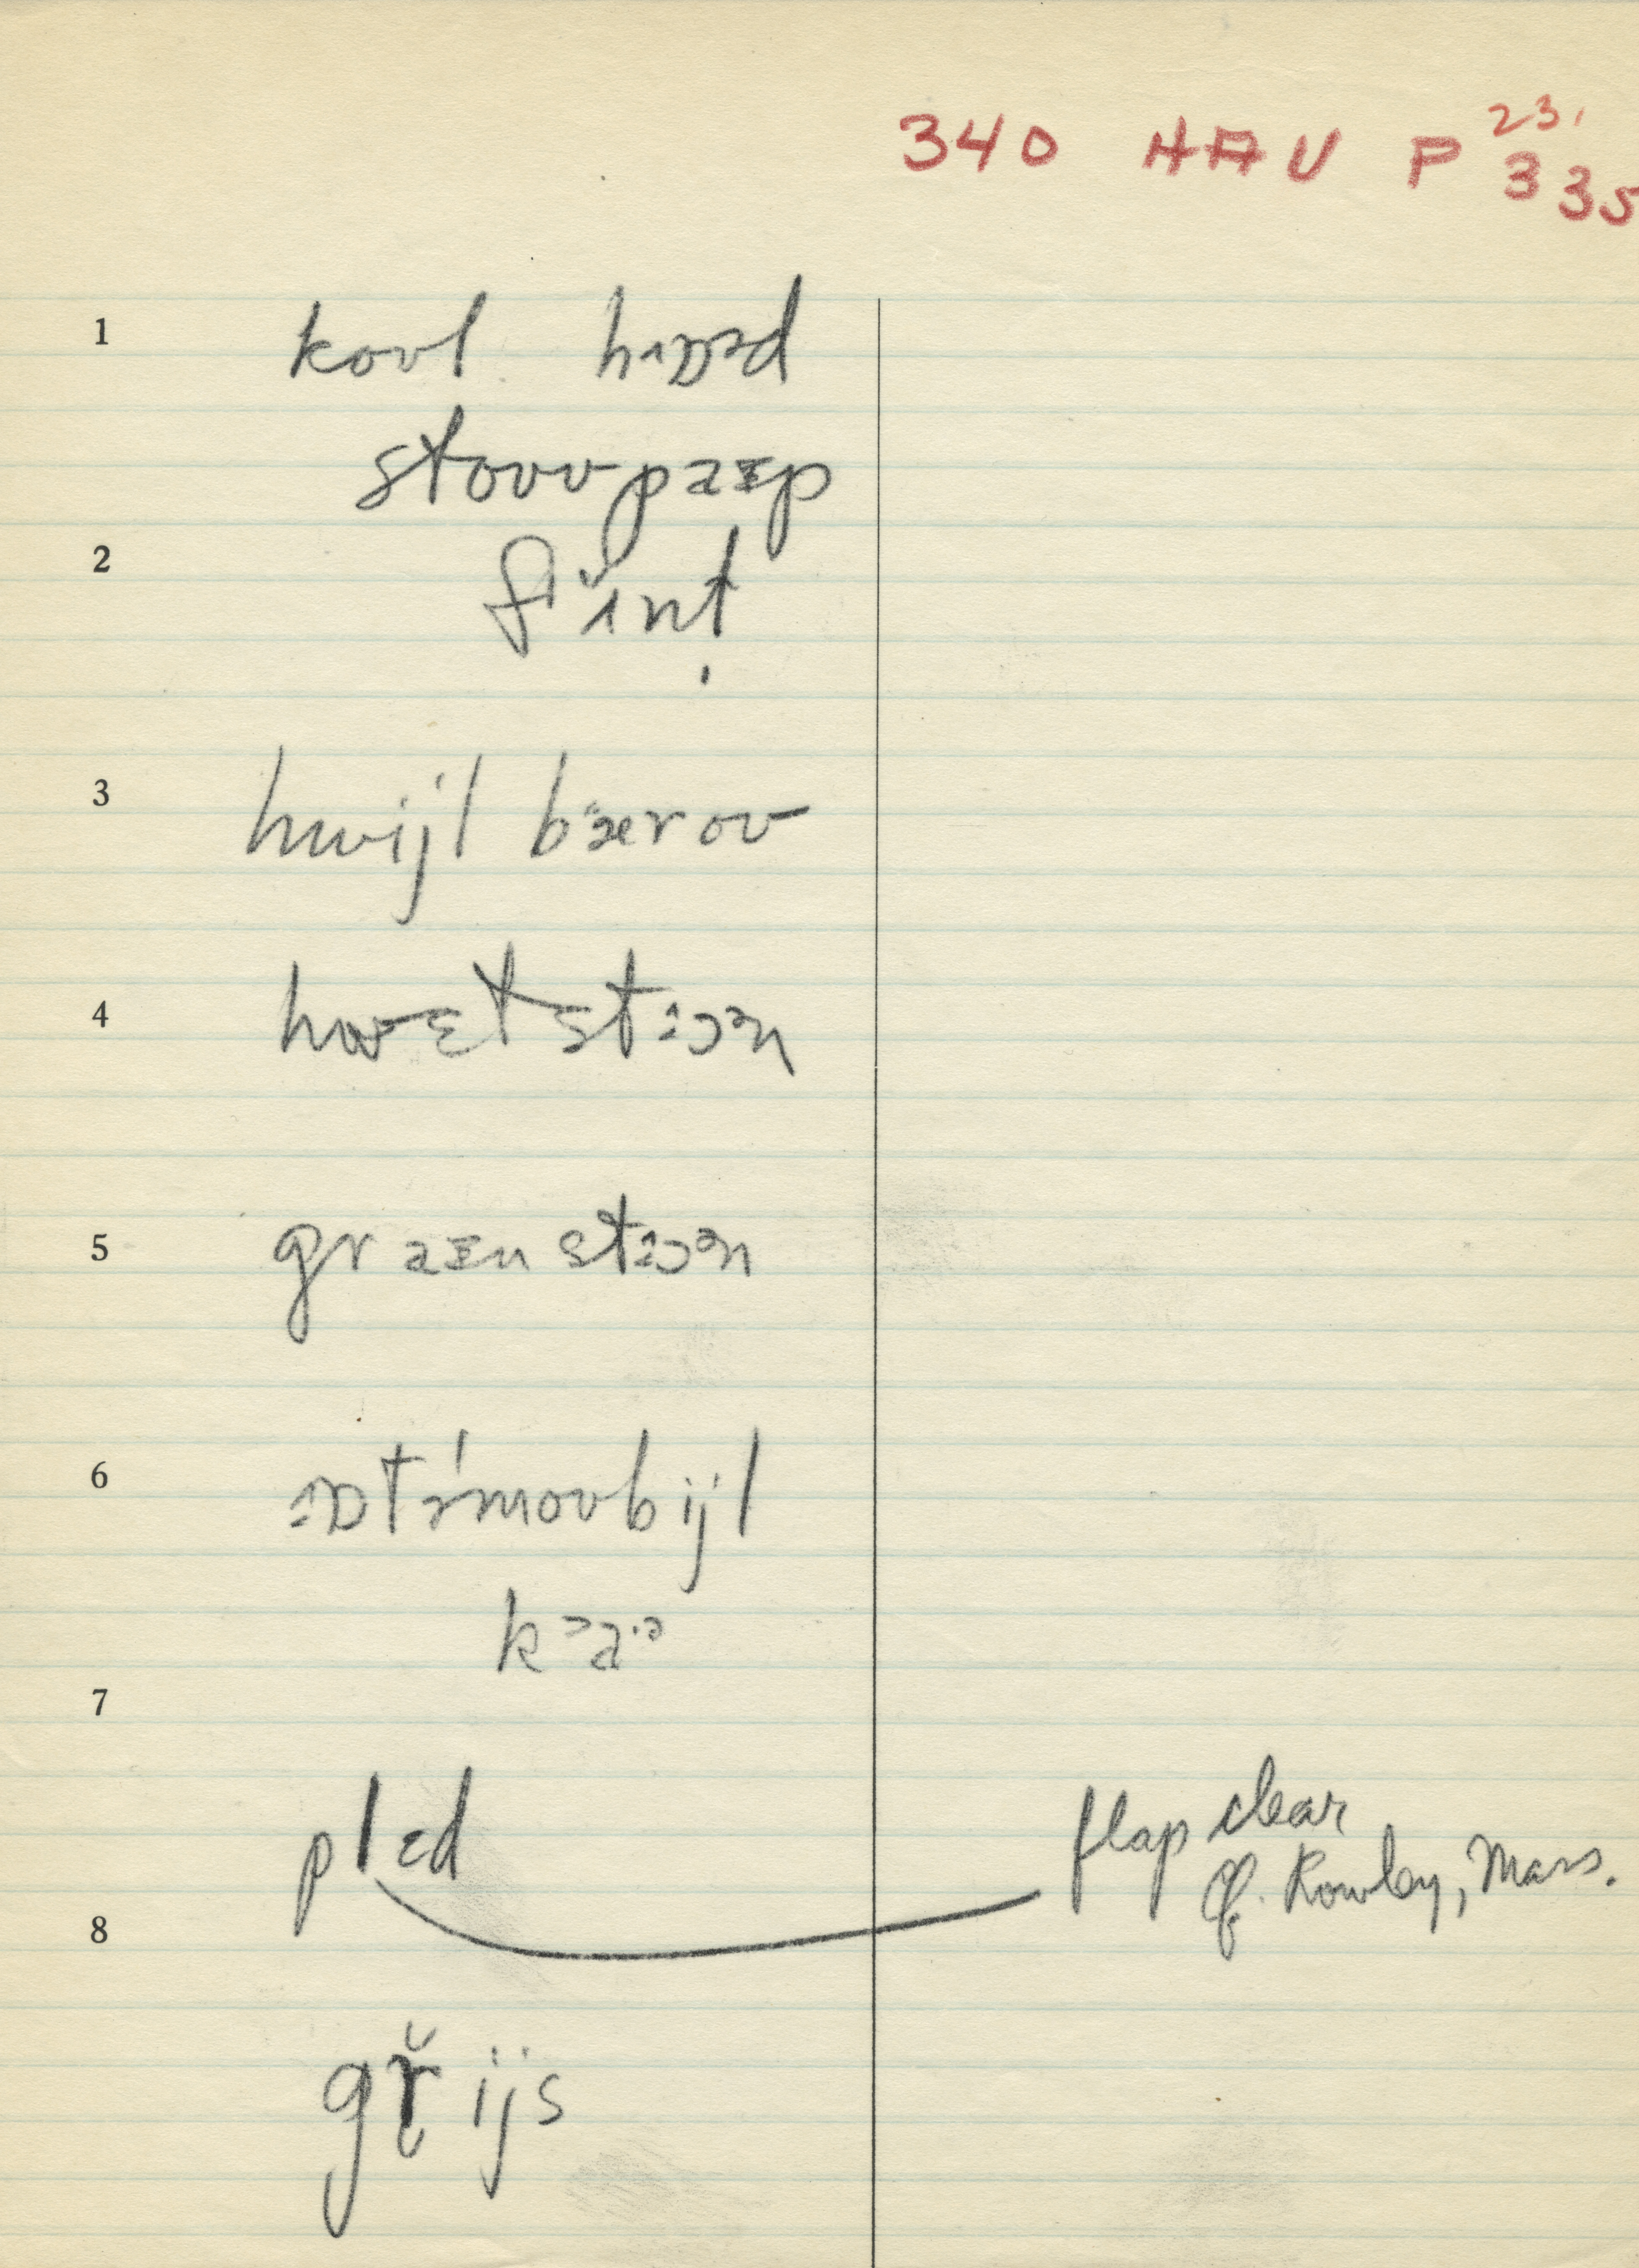 340 HAU P 23, 335
1
koʊl hɒɒəd
stoʊvpaɪp
2
flɪnt
3
hwijl bærou
4
hwɛtstɔən
5
graɪnstɔən
6
ɒtəˈmoʊbijl
kaə
7
plɛd
flap clear
cf. Rowley, Mass.
8
gř̥ijs